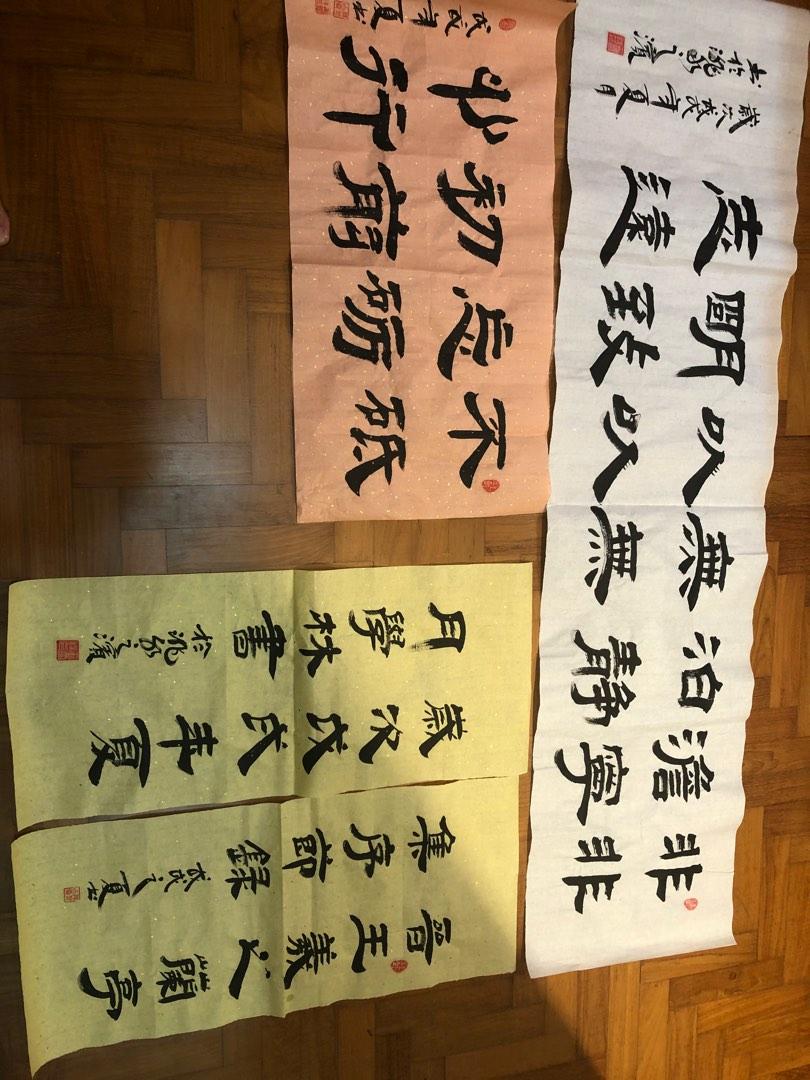 非澹泊無以明志
非寧靜無以致遠
歲次戊戌年夏月
書於之濱
不忘初心
砥砺前行
戊戌年夏於
歲次戊戌年夏
月學林書
於之濱
晉王羲之蘭亭
集序節錄
戊戌之夏於